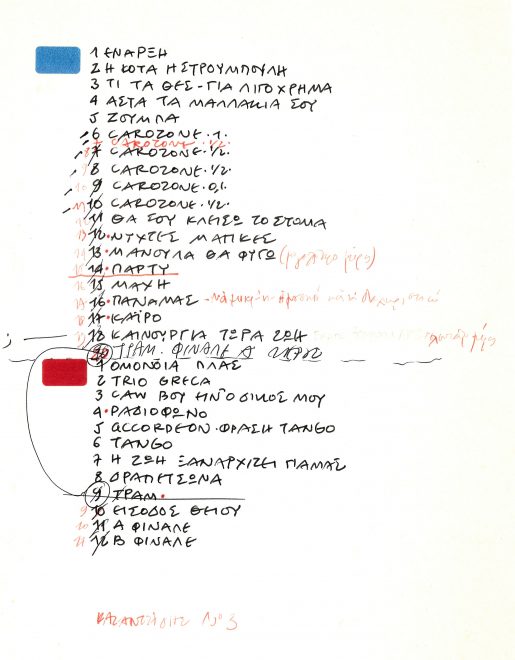 1 ΕΝΑΡΞΗ
2 Η ΚΟΤΑ Η ΣΤΡΟΥΜΠΟΥΛΗ
3 ΤΙ ΤΑ ΘΕΣ - ΓΙΑ ΛΙΓΟ ΧΡΗΜΑ
4 ΑΣΤΑ ΤΑ ΜΑΛΛΑΚΙΑ ΣΟΥ
5 ΖΟΥΜΠΑ
6 CAROZONE · 1.
7 CAROZONE · 1/2.
7 CAROZONE · 1/2.
8 CAROZONE · 1/2.
9 CAROZONE · 0,1.
10 CAROZONE · 1/2.
11 ΘΑ ΣΟΥ ΚΛΕΙΣΩ ΤΟ ΣΤΟΜΑ
12 · ΝΥΧΤΕΣ ΜΑΓΙΚΕΣ
13 · ΜΑΝΟΥΛΑ ΘΑ ΦΥΓΩ
14 · ΠΑΡΤΥ
15 ΜΑΧΗ
16 · ΠΑΝΑΜΑΣ -
17 · ΚΑΪΡΟ
18 ΚΑΙΝΟΥΡΓΙΑ ΤΩΡΑ ΖΩΗ
20 ΤΡΑΜ · ΦΙΝΑΛΕ Α ΜΕΡΟΣ
1 ΟΜΟΝΟΙΑ ΠΛΑΣ
2 TRIO GRECA
3 CAW BOY ΗΝ Ο ΔΙΚΟΣ ΜΟΥ
4 · ΡΑΔΙΟΦΩΝΟ
5 ACCORDEON · ΦΡΑΣΗ TANGO
6 TANGO
7 Η ΖΩΗ ΞΑΝΑΡΧΙΖΕΙ ΓΙΑ ΜΑΣ
8 ΔΡΑΠΕΤΣΩΝΑ
9 ΤΡΑΜ ·
9 10 ΕΙΣΟΔΟΣ ΘΕΙΟΥ
10 11 Α ΦΙΝΑΛΕ
11 12 Β ΦΙΝΑΛΕ
Νο 3